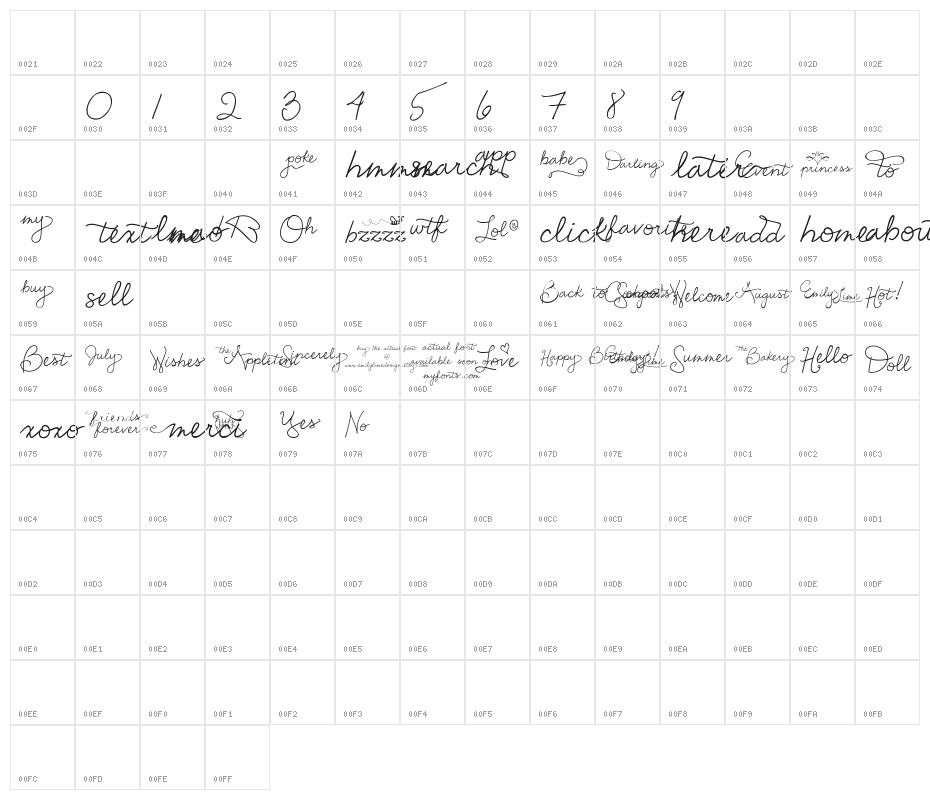 0021 0022 0023 0024 0025 0026 0027 0028 0029 002A 002B 002C 002D 002E
0 1 2 3 4 5 6 7 8 9
002F 0030 0031 0032 0033 0034 0035 0036 0037 0038 0039 003A 003B 003C
poke hmm search app babe Darling later Event princess To
003D 003E 003F 0040 0041 0042 0043 0044 0045 0046 0047 0048 0049 004A
my text Oh bzzzz wtf Lol click favorite here add home about
004B 004C 004D 004E 004F 0050 0051 0052 0053 0054 0055 0056 0057 0058
buy sell Back to Welcome August Emily Lime Hot!
0059 005A 005B 005C 005D 005E 005F 0060 0061 0062 0063 0064 0065 0066
Best July Wishes the Appletent Sincerely buy the actual font actual font available soon @ myfonts.com Love Happy Birthday! Summer The Bakery Hello Doll
0067 0068 0069 006A 006B 006C 006D 006E 006F 0070 0071 0072 0073 0074
xoxo friends forever merci Yes No
0075 0076 0077 0078 0079 007A 007B 007C 007D 007E 00C0 00C1 00C2 00C3
00C4 00C5 00C6 00C7 00C8 00C9 00CA 00CB 00CC 00CD 00CE 00CF 00D0 00D1
00D2 00D3 00D4 00D5 00D6 00D7 00D8 00D9 00DA 00DB 00DC 00DD 00DE 00DF
00E0 00E1 00E2 00E3 00E4 00E5 00E6 00E7 00E8 00E9 00EA 00EB 00EC 00ED
00EE 00EF 00F0 00F1 00F2 00F3 00F4 00F5 00F6 00F7 00F8 00F9 00FA 00FB
00FC 00FD 00FE 00FF